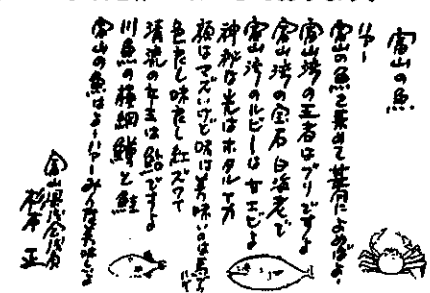 富山の魚
ハァー
富山の魚を集めて甚句によめばよ
富山湾の王者はブリですよ
富山湾の宝石白海老で
富山湾のルビーは甘エビよ
神秘な光はホタルイカ
顔はマズいけど味は美味いのは
色だし味だし紅ズワイ
清流の女王は鮎ですよ
川魚の横綱鱒と鮭
富山の魚はよーハァーみんな美味しいよ
富山県
杉本 正